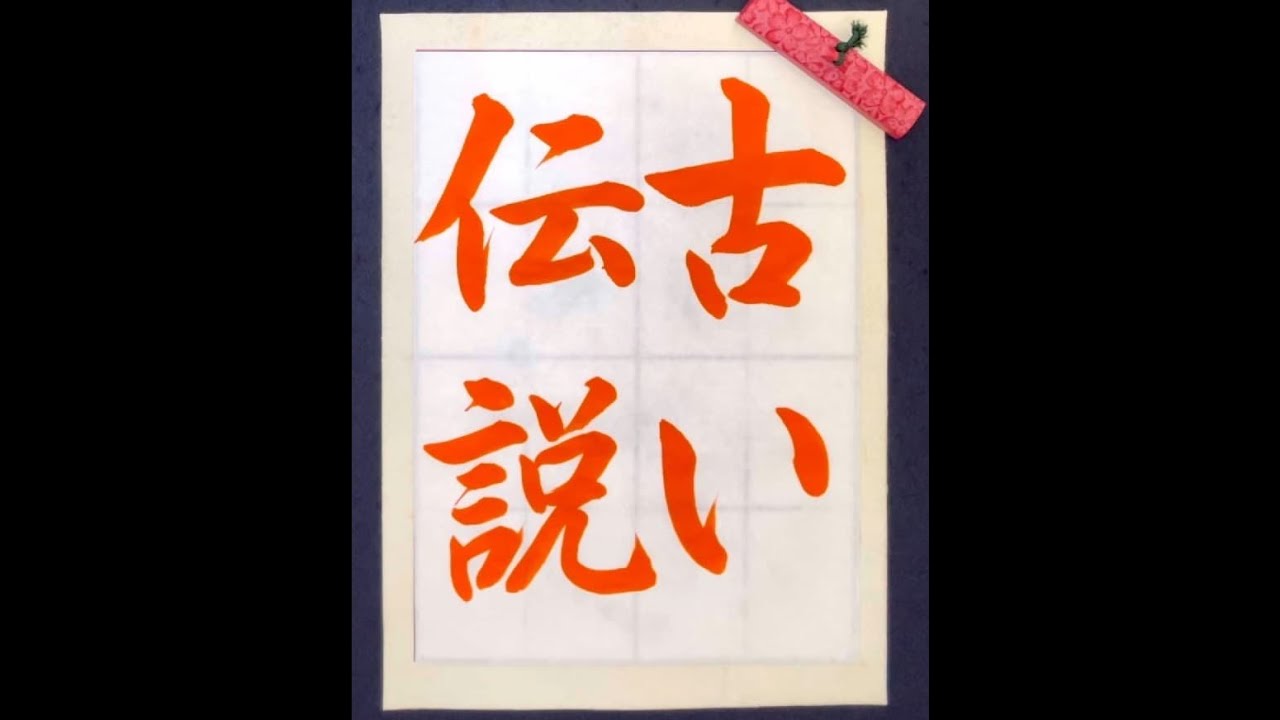 古い
伝説